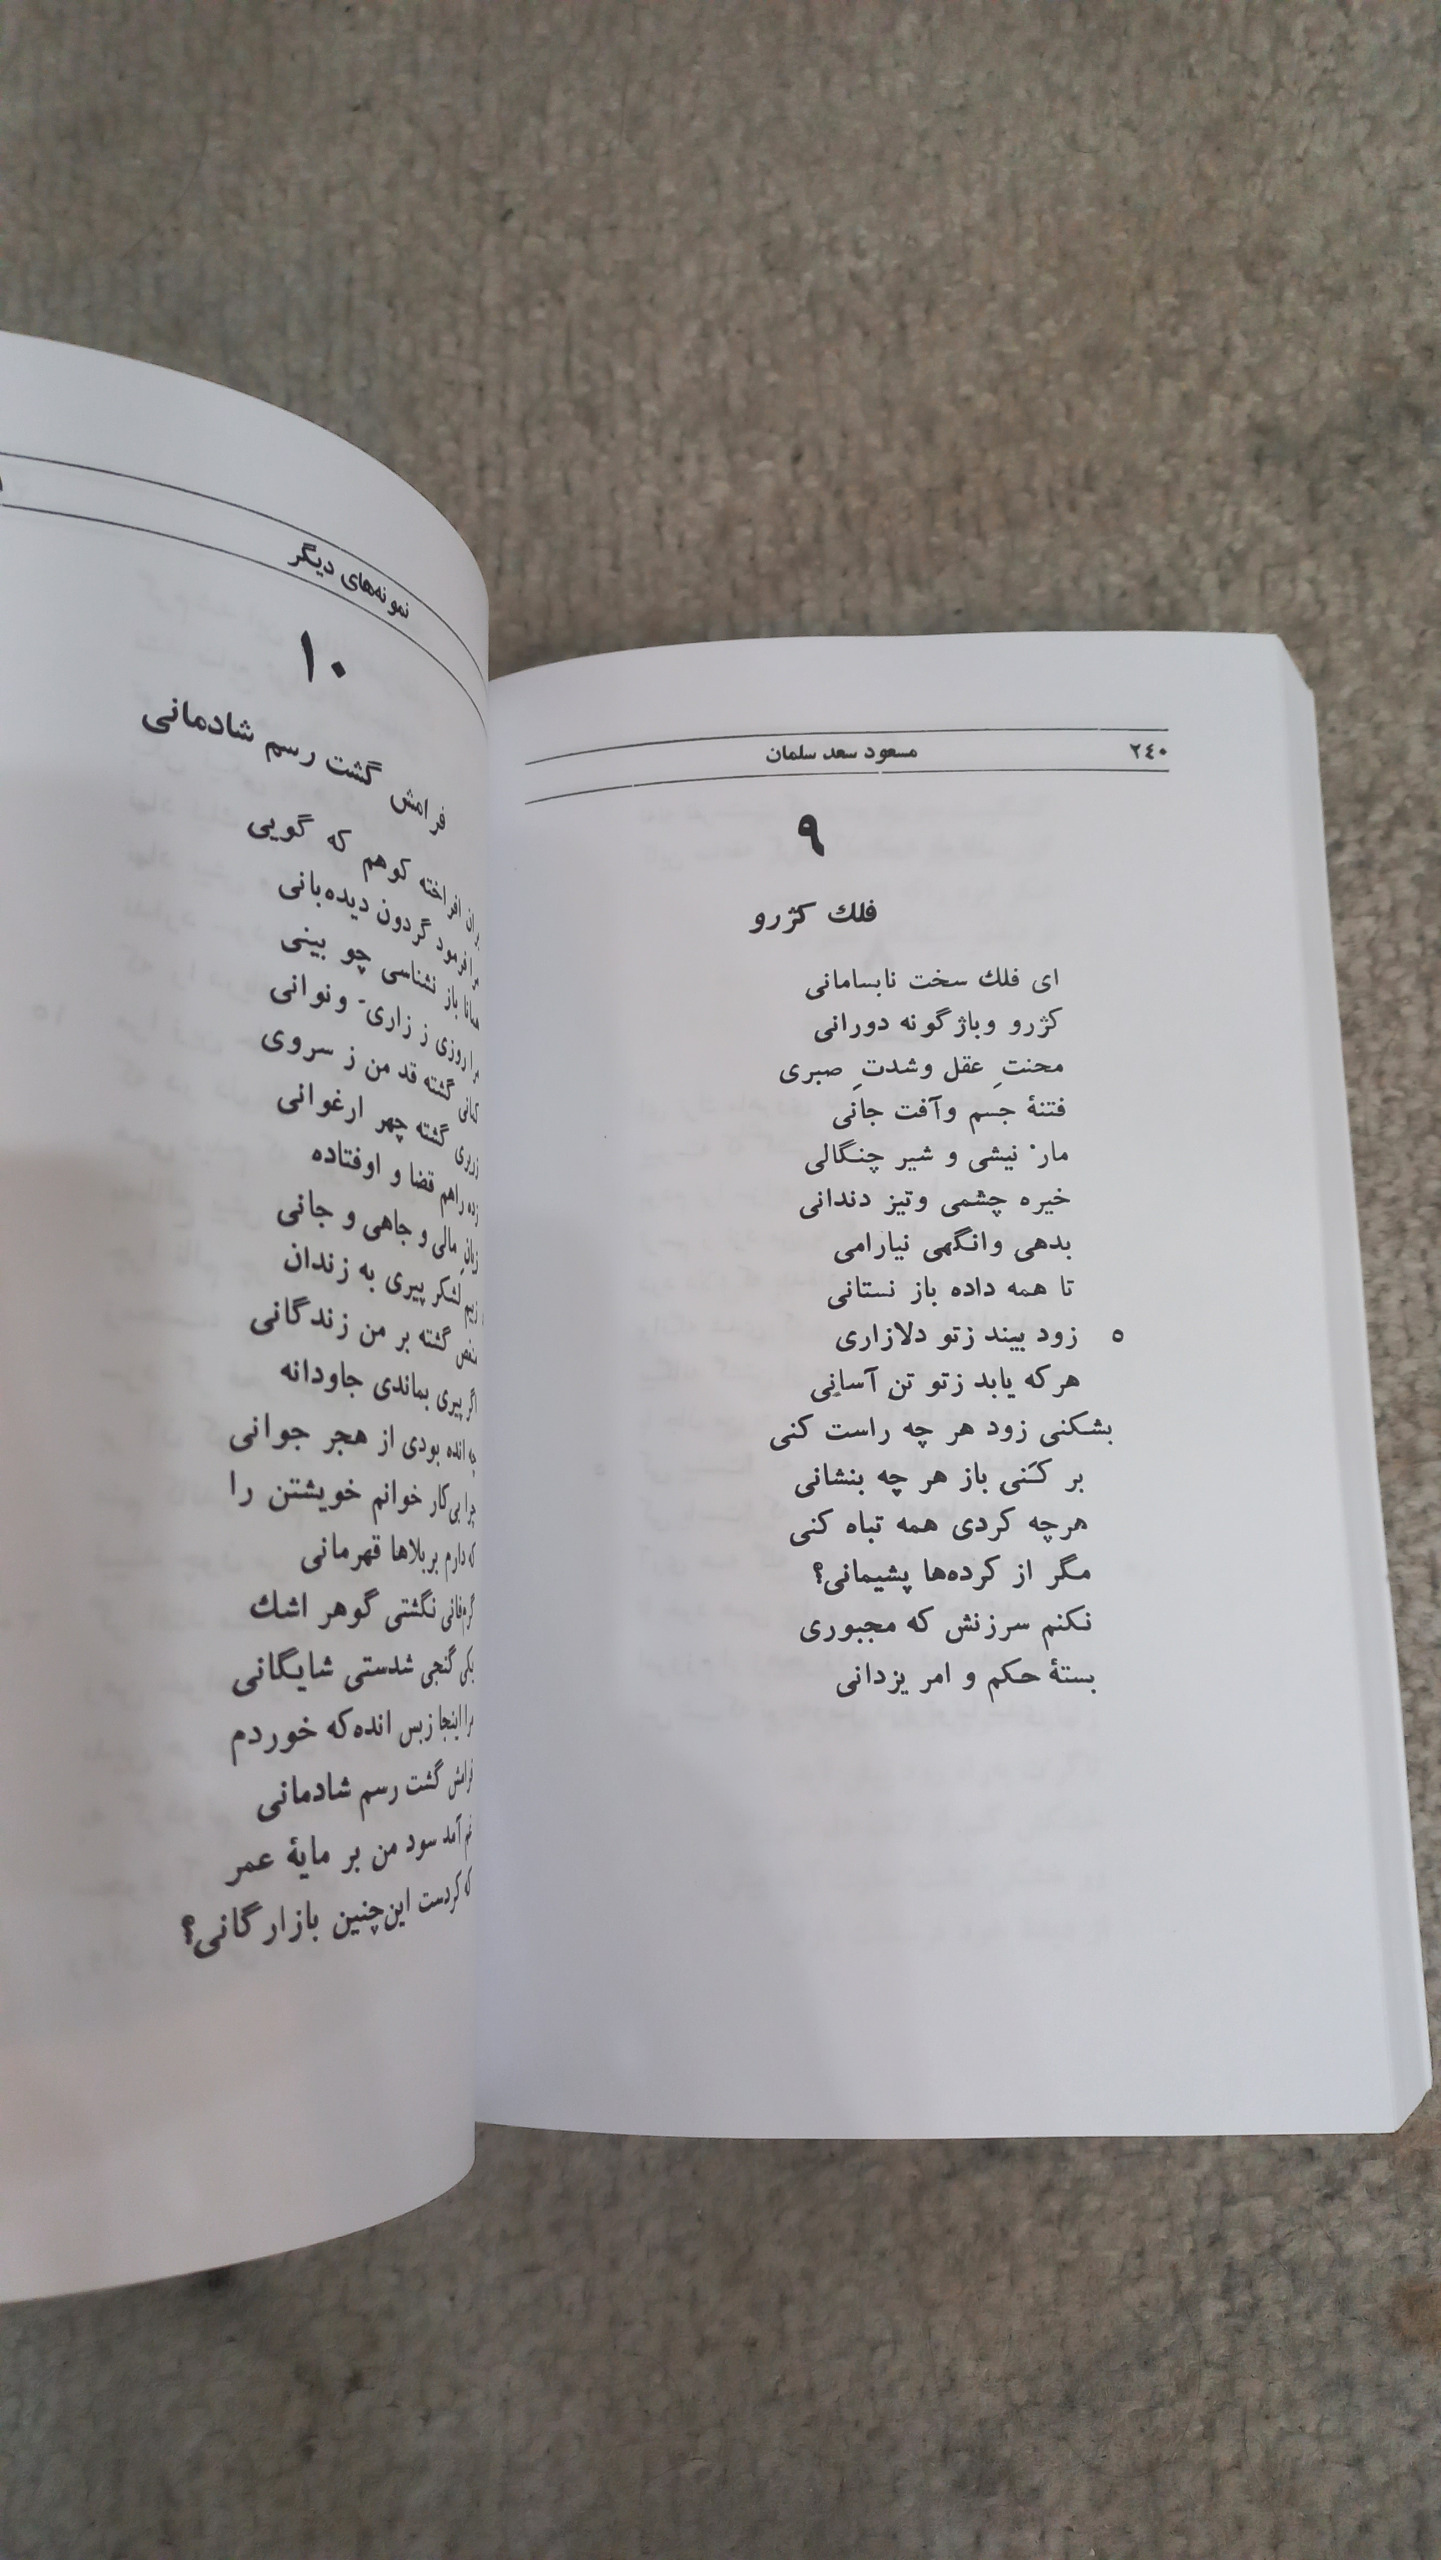 ٢٤٠ مسعود سعد سلمان
٩
فلك كژرو
ای فلك سخت نابسامانی
كژرو وباژگونه دورانی
محنتِ عقل وشدتِ صبری
فتنهٔ جسم وآفت جانی
مارْ نیشی و شیر چنگالی
خیره چشمی وتیز دندانی
بدهی وانگهی نیارامی
تا همه داده باز نستانی
٥ زود بیند زتو دلازاری
هركه یابد زتو تن آسانی
بشكنی زود هر چه راست كنی
بر كَنی باز هر چه بنشانی
هرچه كردی همه تباه كنی
مگر از كرده‌ها پشیمانی؟
نكنم سرزنش كه مجبوری
بستهٔ حكم و امر یزدانی
نمونه‌های دیگر
١٠
فرامش گشت رسم شادمانی
افراخته كوهم كه گویی
مرا فرمود گردون دیده‌بانی
همانا باز نشناسی چو بینی
مرا روزی ز زاری- ونوانی
كمانی گشته قد من ز سروی
زریری گشته چهر ارغوانی
زده راهم قضا و اوفتاده
زیانِ مالی و جاهی و جانی
زبیم لشكر پیری به زندان
منغص گشته بر من زندگانی
اگر پیری بماندی جاودانه
چه انده بودی از هجر جوانی
چرا بی‌كار خوانم خویشتن را
كه دارم بربلاها قهرمانی
گر فانی نگشتی گوهر اشك
یكی گنجی شدستی شایگانی
مرا اینجا زبس انده‌كه خوردم
فرامش گشت رسم شادمانی
غم آمد سود من بر مایهٔ عمر
كه كردست این‌چنین بازارگانی؟